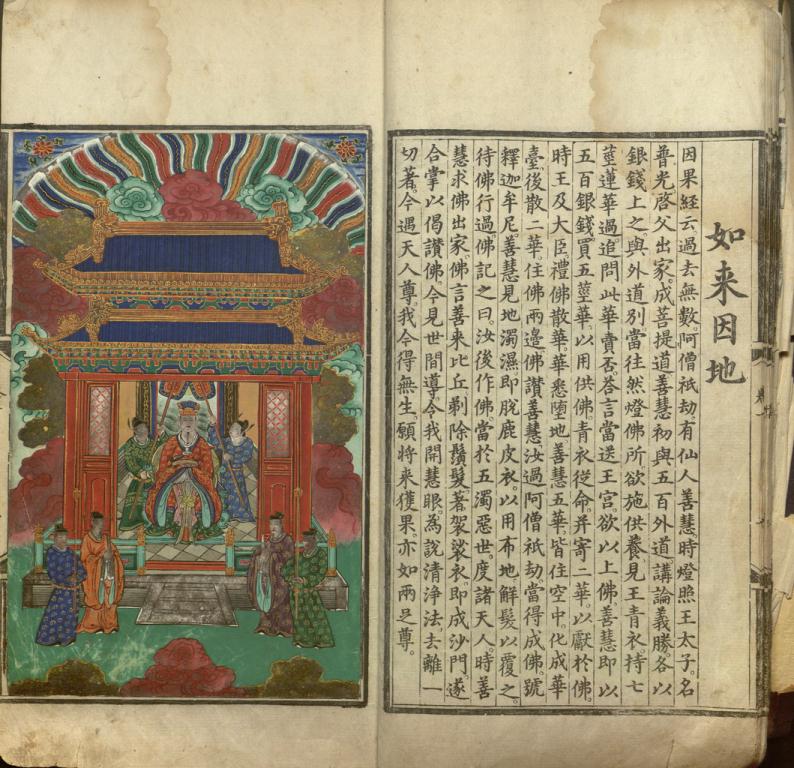 如来因地
因果經云。過去無數。阿僧祇劫有仙人。善慧。時燈照王太子。名
普光。啓父出家。成菩提道。善慧初與五百外道講論義勝。各以
銀錢上之。與外道別。當往然燈佛所。欲施供養。見王青衣。持七
莖蓮華過。追問此華賣否。荅言當送王宮。欲以上佛。善慧即以
五百銀錢。買五莖華。以用供佛。青衣從命。并寄二華。以獻於佛。
時王及大臣。禮佛散華。華悉墮地。善慧五華。皆住空中。化成華
臺。後散二華。住佛兩邊。佛讚善慧。汝過阿僧祇劫。當得成佛。號
釋迦牟尼。善慧見地濁濕。即脫鹿皮衣。以用布地。解髮以覆之。
待佛行過。佛記之曰。汝後作佛。當於五濁惡世。度諸天人。時善
慧求佛出家。佛言善来比丘。剃除鬚髮。著袈裟衣。即成沙門。遂
合掌以偈讚佛。今見世間導。令我開慧眼。為說清淨法。去離一
切著。今遇天人尊。我今得無生。願將来獲果。亦如兩足尊。